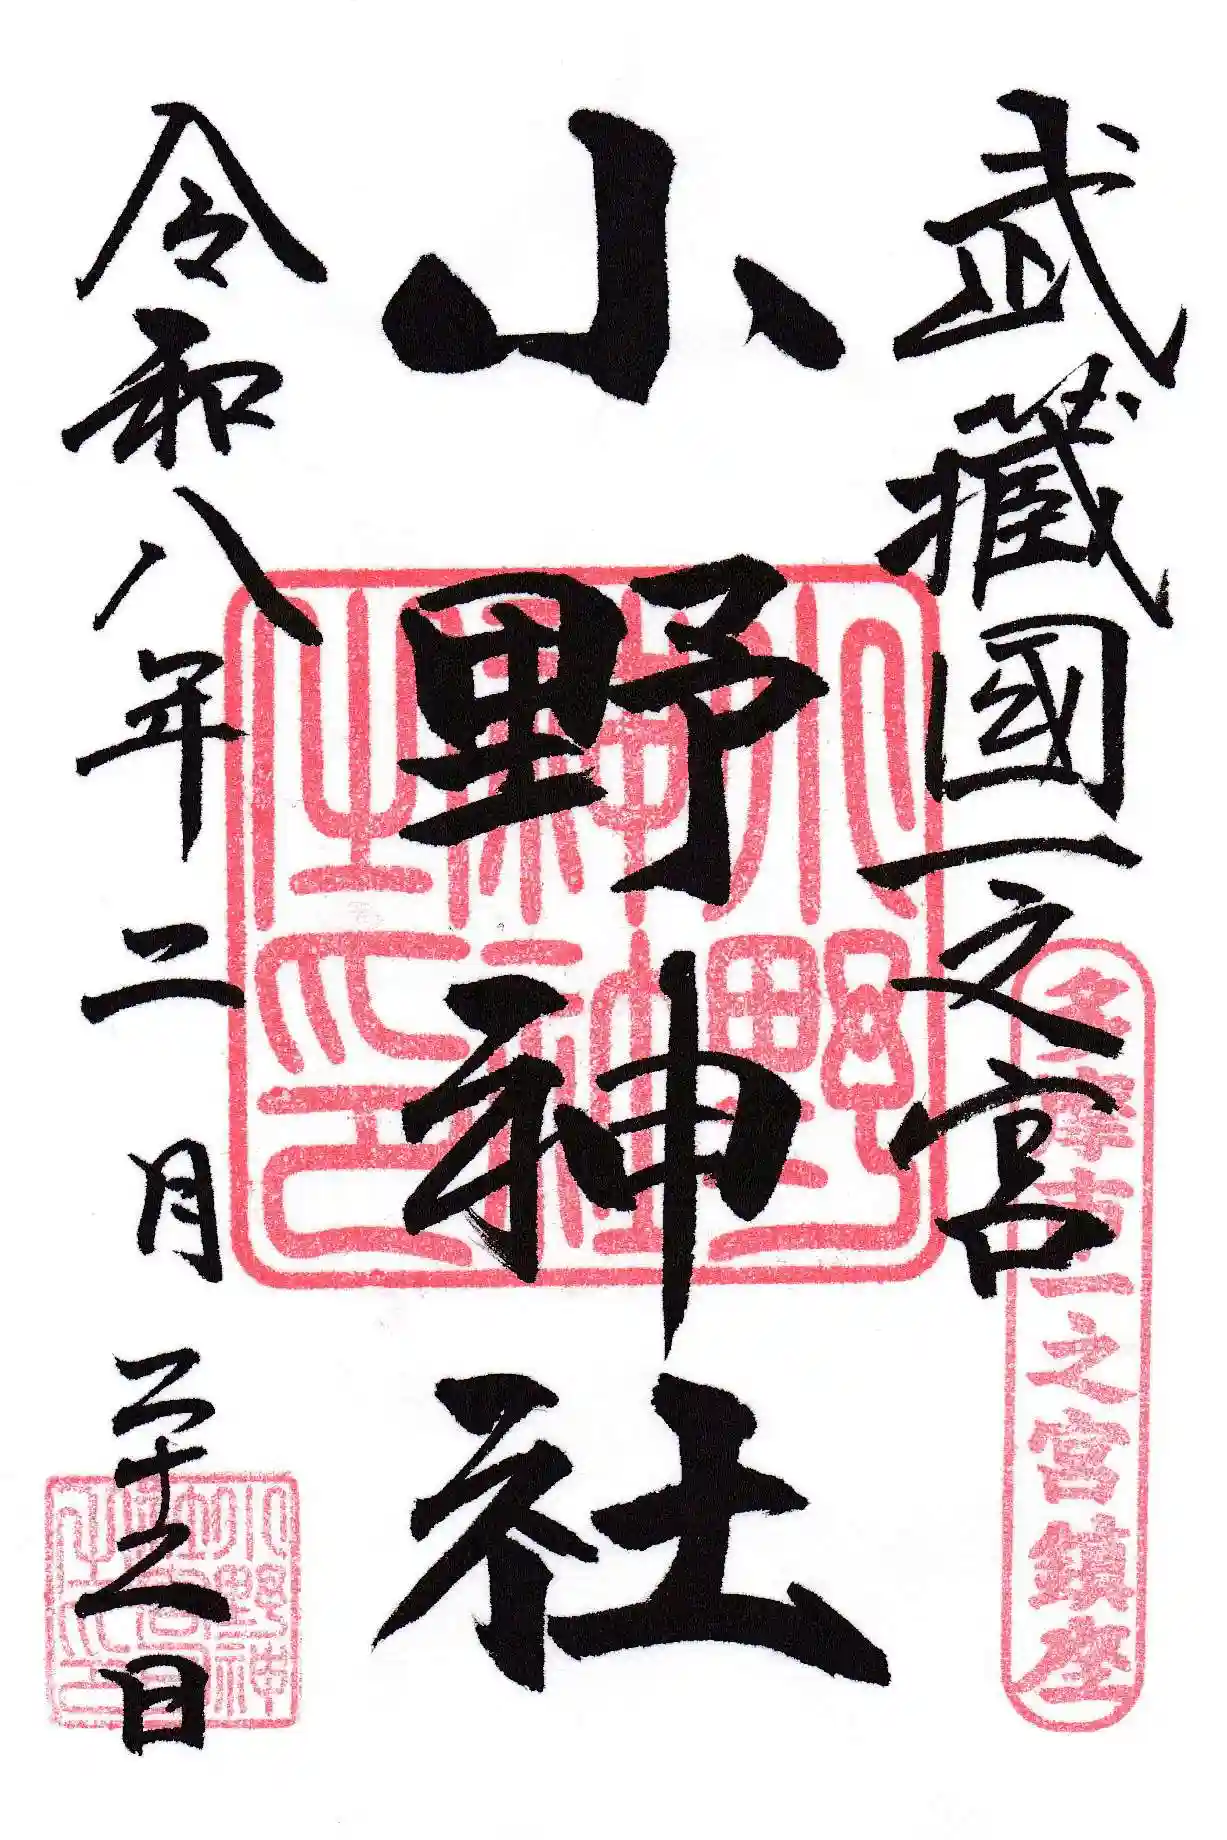 武藏國一之宮
多摩市一之宮鎮座
小野神社
小野神社之印
令和八年二月二十二日
小野神社宮司之印